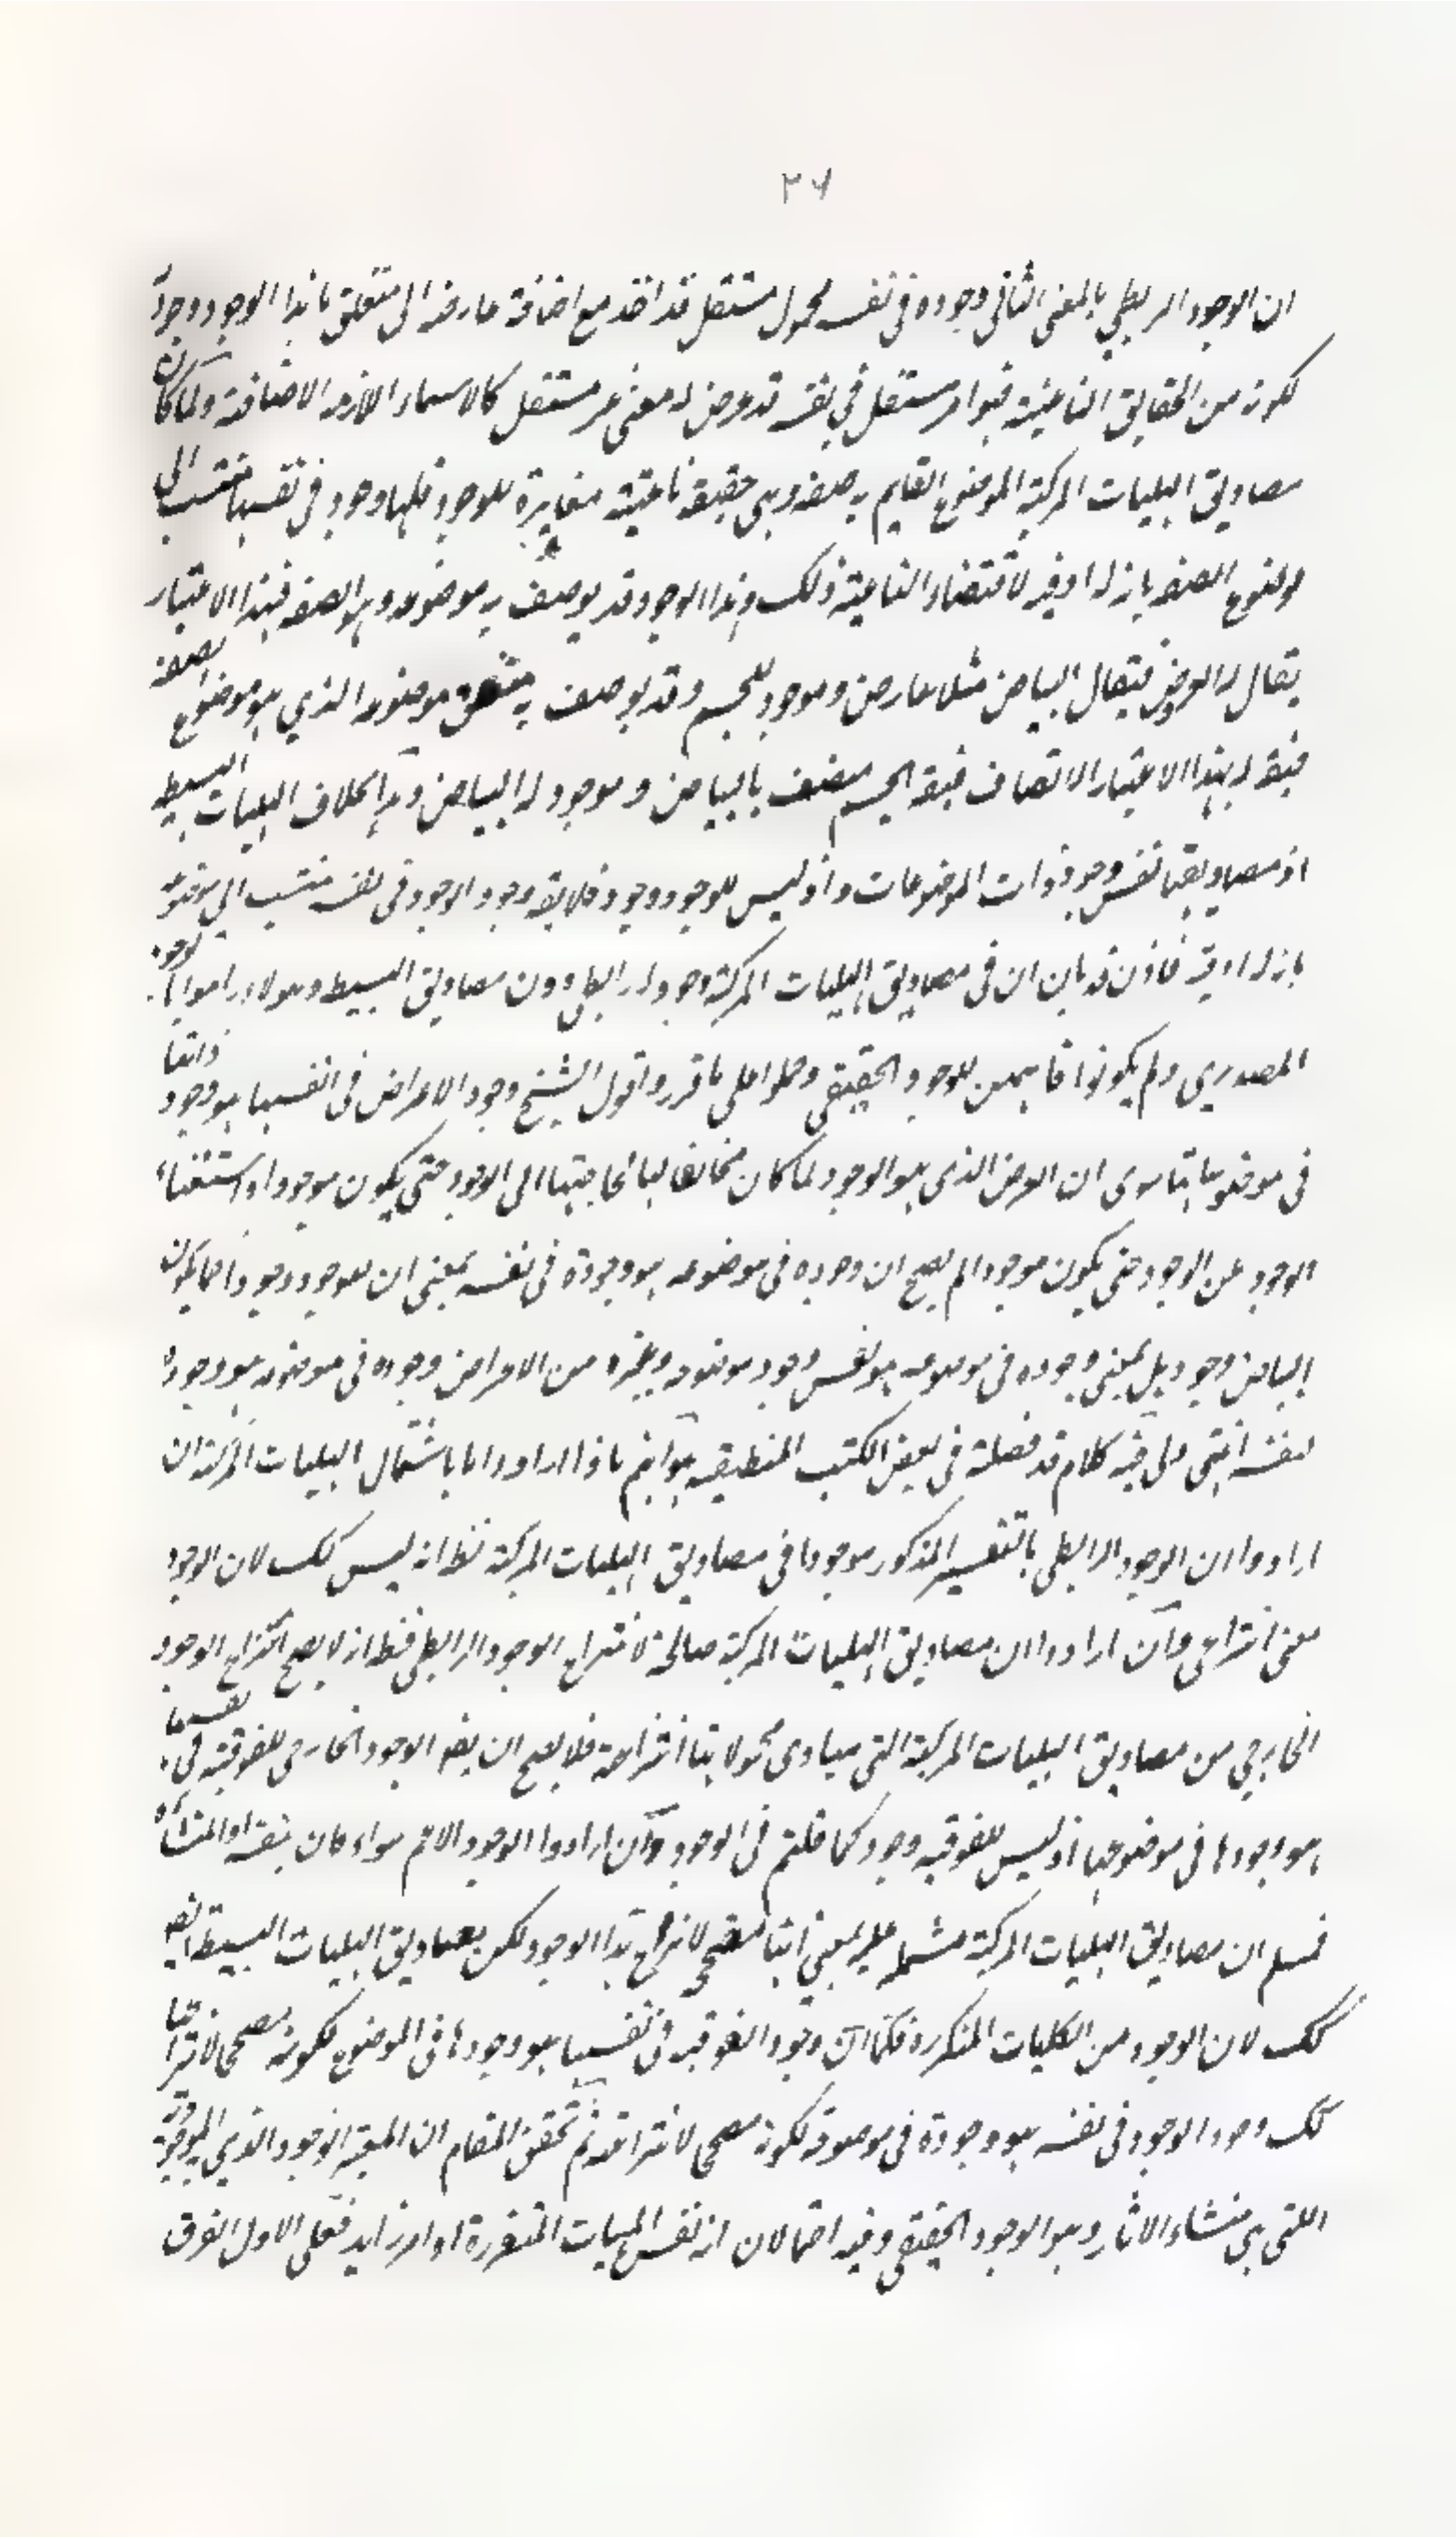 ٢٦
ان الوجود الربطي بالمعنى الثاني وجوده في نفسه محمول مستقل قد اخذ مع اضافة عارضة الى متعلق ما بهذا الوجود وجودا
لكونه من الحقايق الناعتية فهو امر مستقل في نفسه قد عرض له معنى غير مستقل كالاسماء اللازمة الاضافة ولما كان
مصاديق الهليات المركبة الموضوع القايم به صفة وهي حقيقة ناعتية مغايرة للوجود فلها وجود في نفسها منتسب الى
موضوع الصفة بانه له او فيه لاقتضاء الناعتية ذلك وهذا الوجود قد يوصف به موضوعه وهو الصفة فبهذا الاعتبار
يقال له العروض فيقال البياض مثلا عارض وموجود للجسم وقد يوصف به متعلق موضوعه الذي هو موضوع الصفة
فيقال له بهذا الاعتبار الاتصاف فيقال الجسم متصف بالبياض و موجود له البياض وهذا بخلاف الهليات البسيطة
اذ مصاديقها نفس وجود ذوات الموضوعات واذ ليس للوجود وجود فلا يقال وجود الوجود في نفسه منتسب الى موضوعه
بانه له او فيه فاذن قد بان ان في مصاديق الهليات المركبة وجودا رابطيا دون مصاديق البسيطة وهولاء راموا بالوجود
المصدري ولم يكونوا قايمين للوجود الحقيقي وحملوا على ما قرروا قول الشيخ وجود الاعراض في انفسها هو وجود ذواتها
في موضوعاتها سوى ان العرض الذي هو الوجود لما كان مخالفا لها لحاجتها الى الوجود حتى يكون موجودا واستغناء
الوجود عن الوجود حتى يكون موجودا لم يصح ان وجوده في موضوعه هو وجوده في نفسه بمعنى ان للوجود وجودا كما يكون
للبياض وجود بل بمعنى وجوده في موضوعه هو نفس وجود موضوعه وغيره من الاعراض وجوده في موضوعه هو وجود
نفسه انتهى ولي فيه كلام قد فصلته في بعض الكتب المنطقية هو انهم ماذا ارادوا باشتمال الهليات المركبة ان
ارادوا ان الوجود الرابطي بالتفسير المذكور موجودا في مصاديق الهليات المركبة فظ انه ليس كك لان الوجود
معنى انتزاعي وان ارادوا ان مصاديق الهليات المركبة صالحة لانتزاع الوجود الرابطي فظ انه لا يصح انتزاع الوجود
الخارجي من مصاديق الهليات المركبة التي مبادي محمولاتها انتزاعية فلا يصح ان يقال الوجود الخارجي للفوقية في نفسها
هو وجودها في موضوعها اذ ليس للفوقية وجود كما قلتم في الوجود وان ارادوا الوجود الاعم سواء كان بنفسه او لمنشائه
فمسلم ان مصاديق الهليات المركبة مشتملة عليه بمعنى انها مصححة لانتزاع هذا الوجود لكن مصاديق الهليات البسيطة ايضا
كك لان الوجود من الكليات المتكررة فكما ان وجود الفوقية في نفسها هو وجودها في الموضوع لكونه مصححا لانتزاعها
كك وجود الوجود في نفسه هو وجوده في موضوعه لكونه مصححا لانتزاعه ثم تحقيق المقام ان الوجود الذي
اللتى هي منشاء الاثار وهو الوجود الحقيقي وفيه احتمالان انه نفس المهيات المتقررة او امر زايد فعلى الاول الفرق